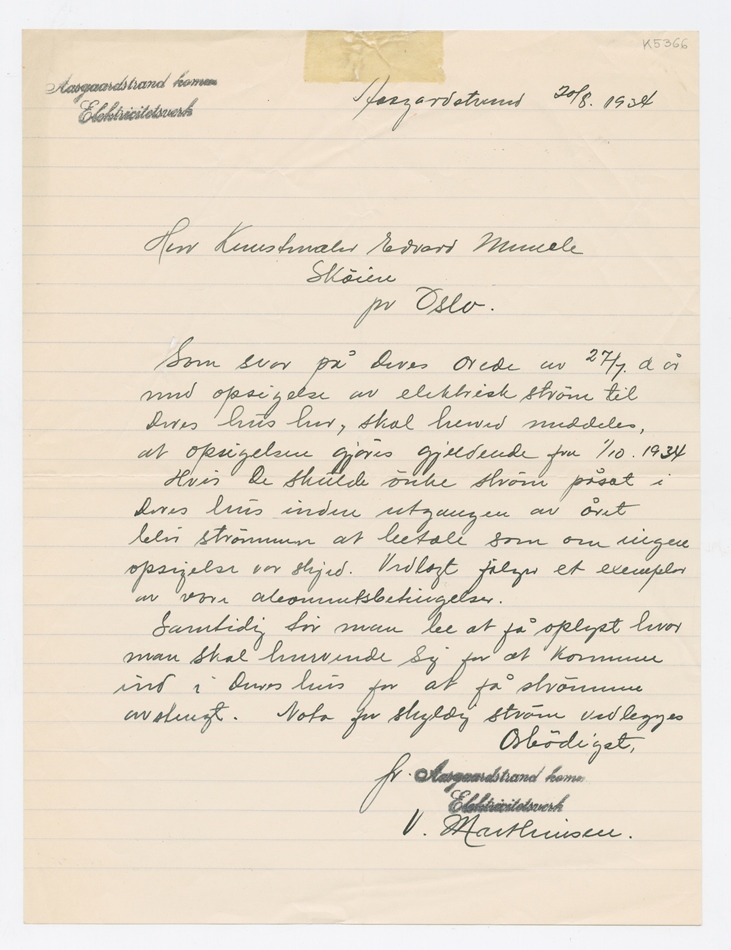 K5366
Aasgaardstrand komm
Elektricitetsverk
Aasgardstrand 20/8. 1934
Herr Kunstmaler Edvard Munch
Skøien
pr Oslo.
Som svar på Deres ærede av 27/7. d år
med opsigelse av elektrisk strøm til
Deres hus her, skal herved meddeles,
at opsigelsen gjøres gjeldende fra 1/10. 1934
Hvis De skulde ønke strøm påsat i
Deres hus inden utgangen av året
blir strømmen at betale som om ingen
opsigelse var skjed. Vedlagt følger et exemplar
av vore abonnentsbetingelser.
Samtidig tør man be at få oplyst hvor
man skal henvende sig for at komme
ind i Deres hus for at få strømmen
avstengt. Nota for skyldig strøm vedlegges
Ærbødigst,
fr. Aasgaardstrand komm
Elektricitetsverk
V. Marthinsen.